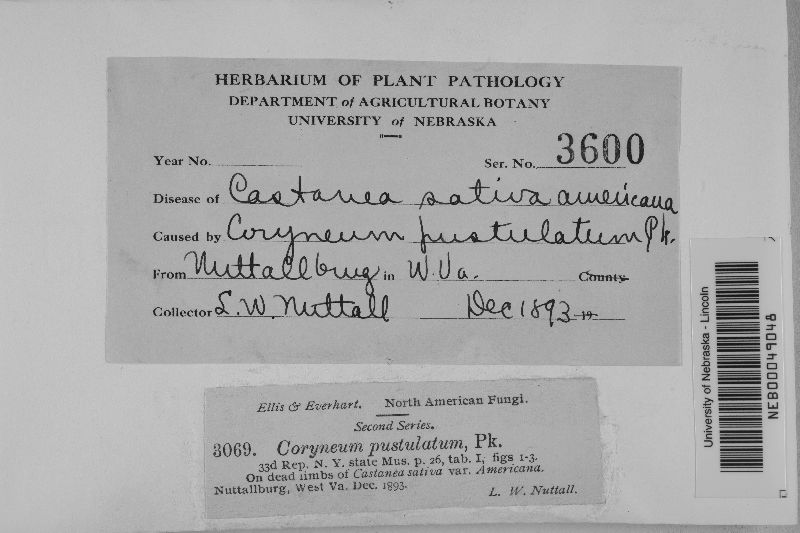 HERBARIUM OF PLANT PATHOLOGY
DEPARTMENT of AGRICULTURAL BOTANY
UNIVERSITY of NEBRASKA
Year No. Ser. No. 3600
Disease of Castanea sativa americana
Caused by Coryneum pustulatum Pk.
From Nuttallburg in W. Va. County
Collector L. W. Nuttall Dec 1893 19
Ellis & Everhart. North American Fungi.
Second Series.
3069. Coryneum pustulatum, Pk.
33d Rep. N. Y. state Mus. p. 26, tab. I, figs 1-3.
On dead limbs of Castanea sativa var. Americana.
Nuttallburg, West Va. Dec. 1893.
L. W. Nuttall.
University of Nebraska - Lincoln
NEB00049048